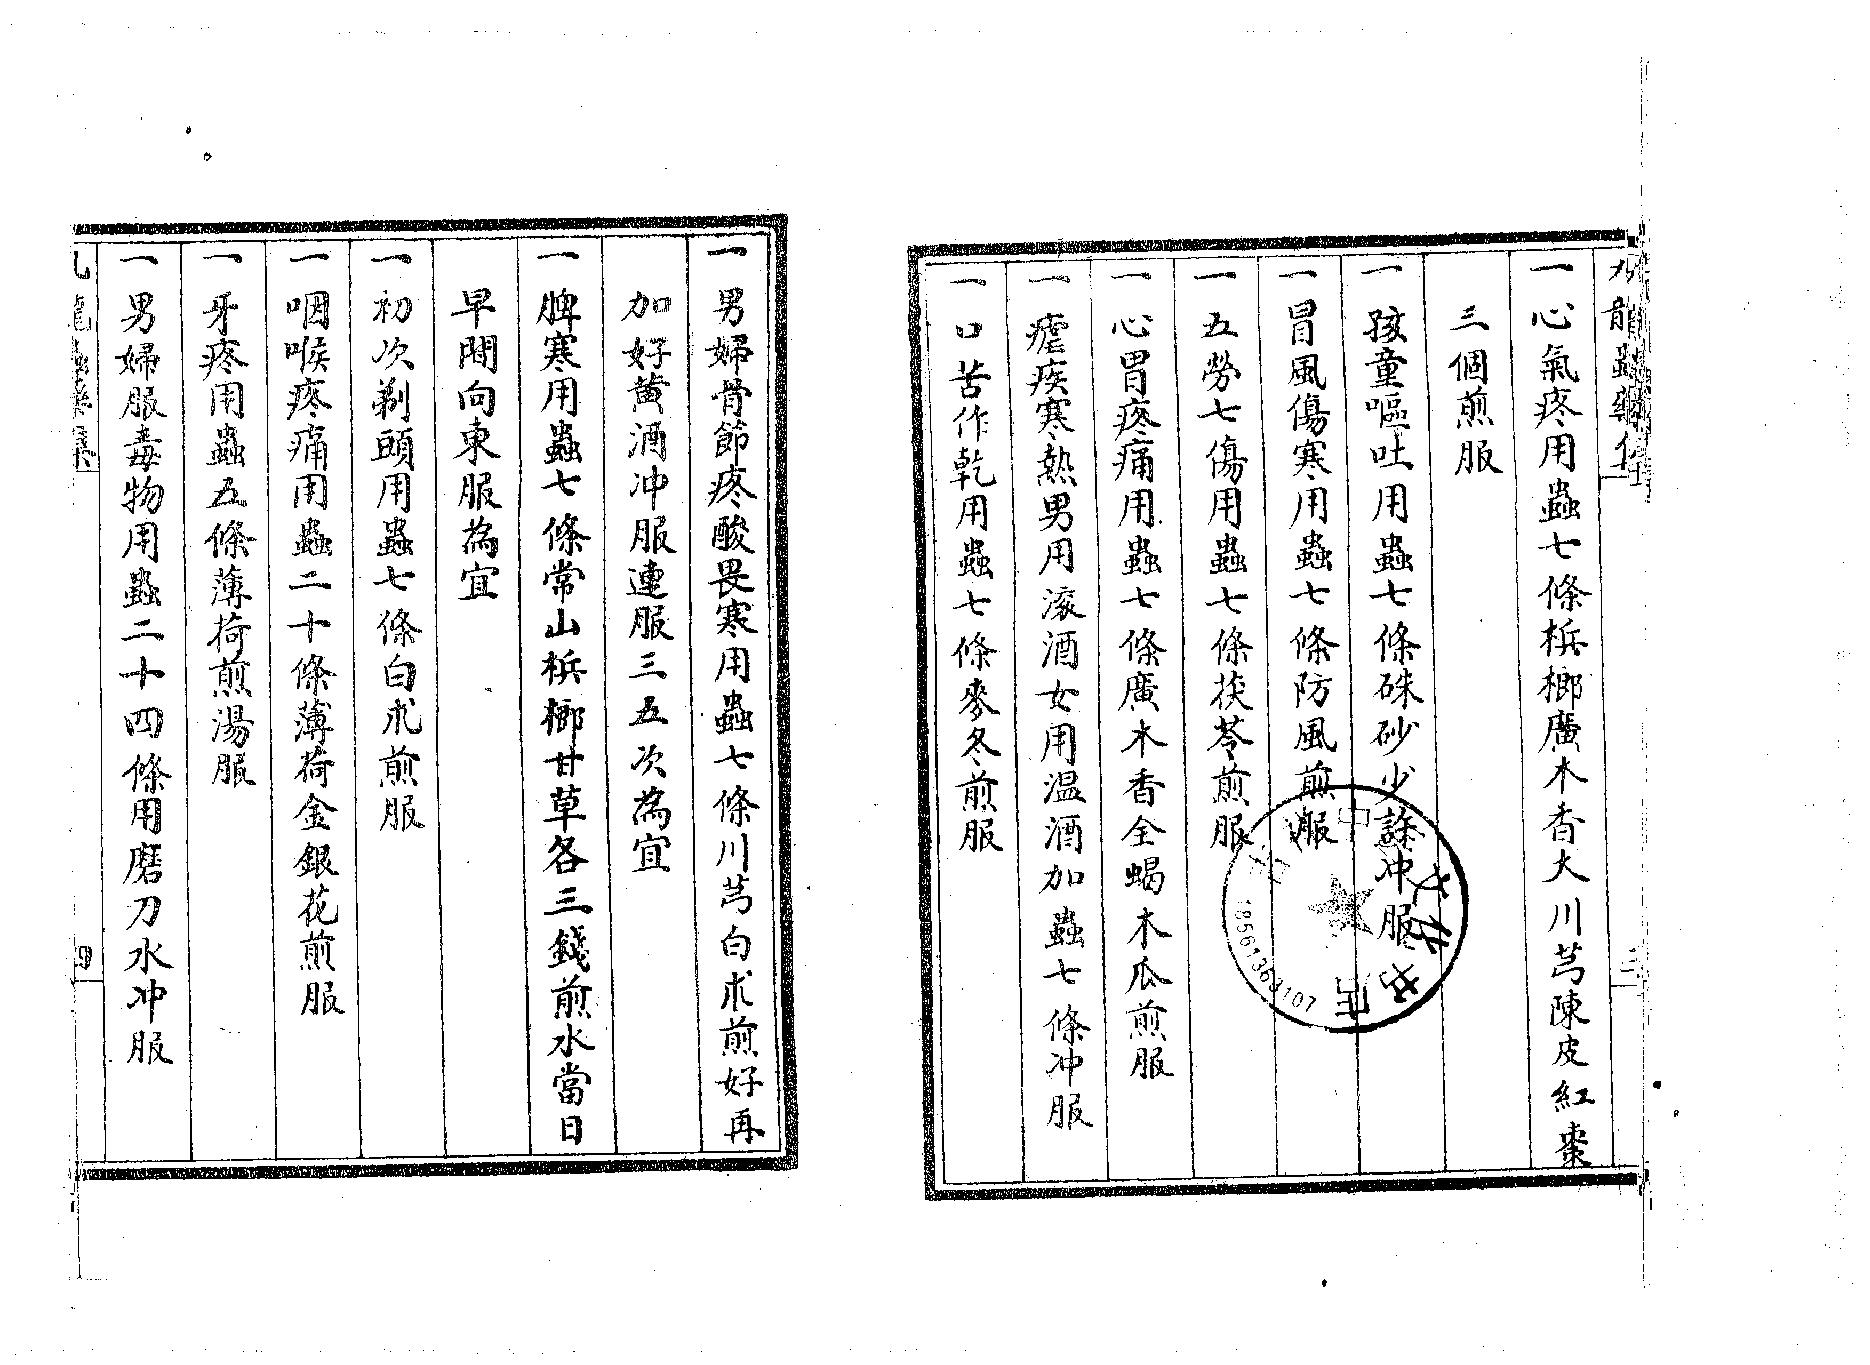 一心氣疼用蟲七條梹榔廣木香大川芎陳皮紅棗
三個煎服
一孩童嘔吐用蟲七條硃砂少許冲服
一冒風傷寒用蟲七條防風煎服
一五勞七傷用蟲七條茯苓煎服
一心胃疼痛用蟲七條廣木香全蝎木瓜煎服
一瘧疾寒熱男用滚酒女用温酒加蟲七條冲服
一口苦作乾用蟲七條麥冬煎服
一男婦骨節疼酸畏寒用蟲七條川芎白朮煎好再
加好黄酒冲服連服三五次為宜
一脾寒用蟲七條常山梹榔甘草各三錢煎水當日
早間向東服為宜
一初次剃頭用蟲七條白朮煎服
一咽喉疼痛用蟲二十條薄荷金銀花煎服
一牙疼用蟲五條薄荷煎湯服
一男婦服毒物用蟲二十四條用磨刀水冲服